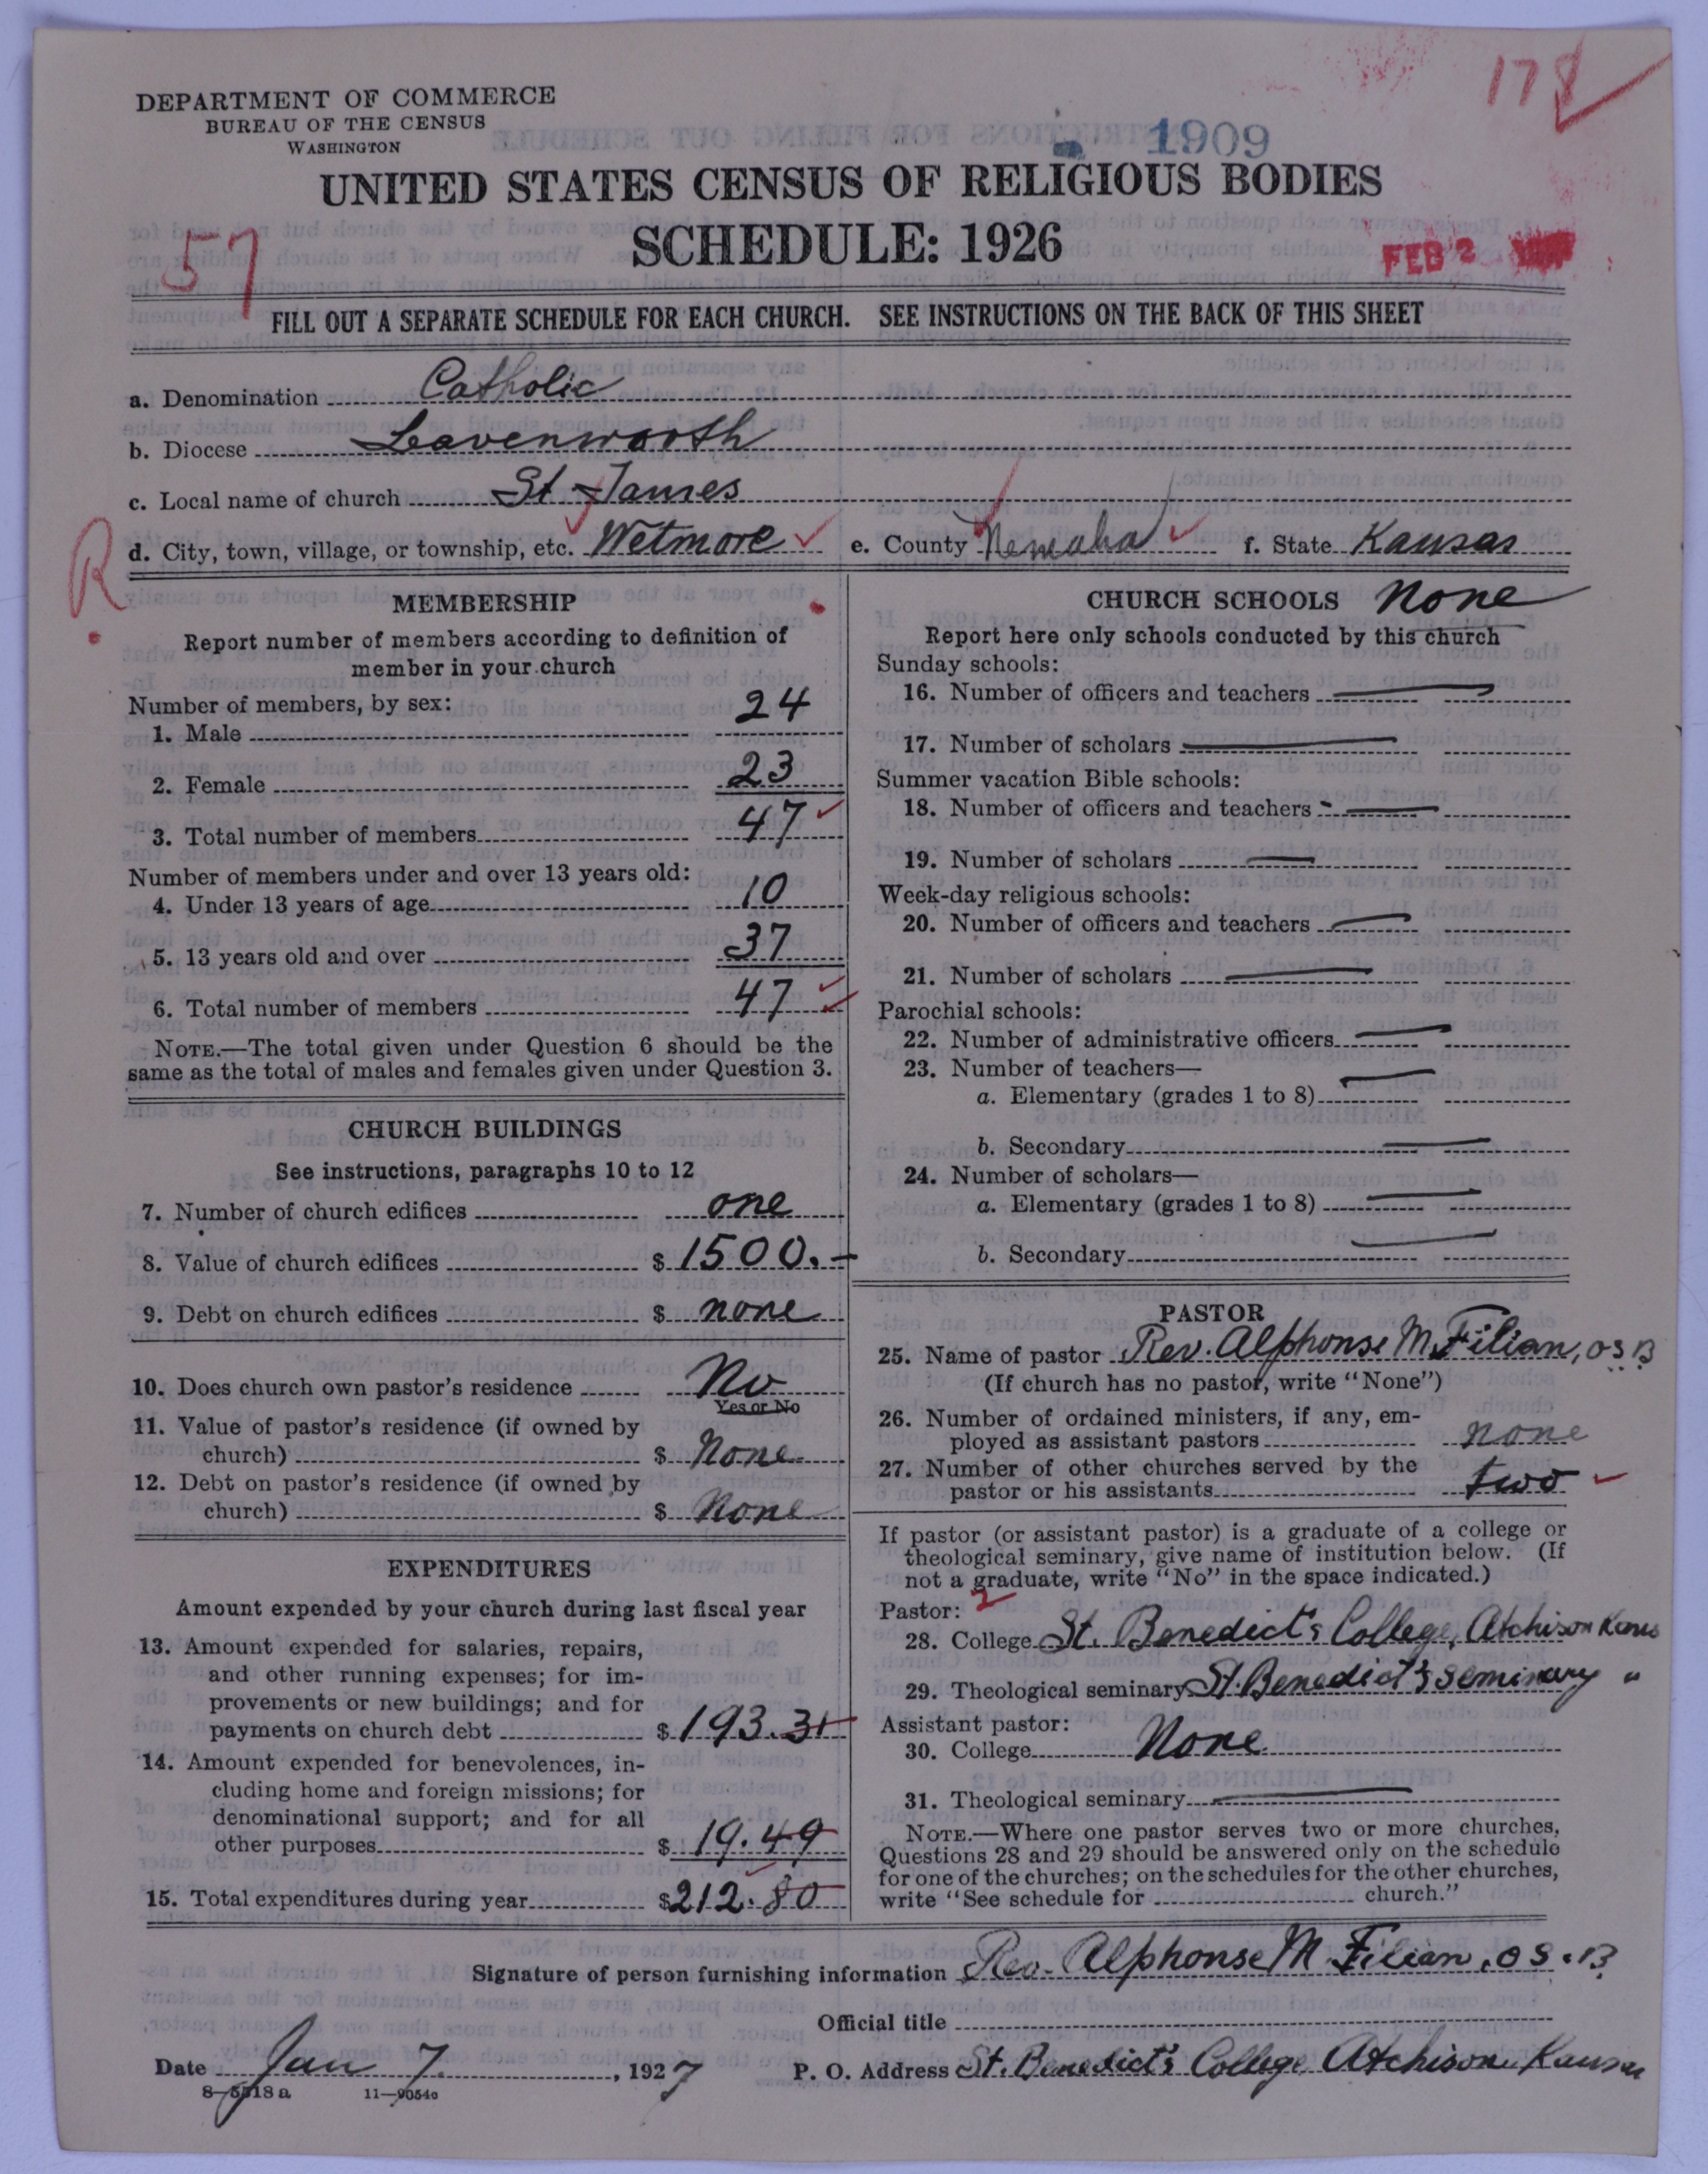 178
DEPARTMENT OF COMMERCE
BUREAU OF THE CENSUS
WASHINGTON
1909
UNITED STATES CENSUS OF RELIGIOUS BODIES
SCHEDULE: 1926
57
FEB 2
FILL OUT A SEPARATE SCHEDULE FOR EACH CHURCH. SEE INSTRUCTIONS ON THE BACK OF THIS SHEET
a. Denomination Catholic
b. Diocese Leavenworth
c. Local name of church St James
R
d. City, town, village, or township, etc. Wetmore e. County Nemaha f. State Kansas
MEMBERSHIP
Report number of members according to definition of
member in your church
Number of members, by sex:
1. Male 24
2. Female 23
3. Total number of members 47
Number of members under and over 13 years old:
4. Under 13 years of age 10
5. 13 years old and over 37
6. Total number of members 47
NOTE.—The total given under Question 6 should be the
same as the total of males and females given under Question 3.
CHURCH BUILDINGS
See instructions, paragraphs 10 to 12
7. Number of church edifices one
8. Value of church edifices $ 1500.-
9. Debt on church edifices $ none
10. Does church own pastor's residence No
Yes or No
11. Value of pastor's residence (if owned by
church) $ None
12. Debt on pastor's residence (if owned by
church) $ None
EXPENDITURES
Amount expended by your church during last fiscal year
13. Amount expended for salaries, repairs,
and other running expenses; for im-
provements or new buildings; and for
payments on church debt $ 193.31
14. Amount expended for benevolences, in-
cluding home and foreign missions; for
denominational support; and for all
other purposes $ 19.49
15. Total expenditures during year $ 212.80
CHURCH SCHOOLS None
Report here only schools conducted by this church
Sunday schools:
16. Number of officers and teachers
17. Number of scholars
Summer vacation Bible schools:
18. Number of officers and teachers
19. Number of scholars
Week-day religious schools:
20. Number of officers and teachers
21. Number of scholars
Parochial schools:
22. Number of administrative officers
23. Number of teachers—
a. Elementary (grades 1 to 8)
b. Secondary
24. Number of scholars—
a. Elementary (grades 1 to 8)
b. Secondary
PASTOR
25. Name of pastor Rev. Alphonse M. Filian, OSB
(If church has no pastor, write "None")
26. Number of ordained ministers, if any, em-
ployed as assistant pastors none
27. Number of other churches served by the
pastor or his assistants two
If pastor (or assistant pastor) is a graduate of a college or
theological seminary, give name of institution below. (If
not a graduate, write "No" in the space indicated.)
Pastor: 2
28. College St. Benedict's College, Atchison Kans
29. Theological seminary St. Benedict's Seminary "
Assistant pastor:
30. College None
31. Theological seminary
NOTE.—Where one pastor serves two or more churches,
Questions 28 and 29 should be answered only on the schedule
for one of the churches; on the schedules for the other churches,
write "See schedule for church."
Signature of person furnishing information Rev. Alphonse M. Filian, O.S.B.
Official title
Date Jan 7. , 1927 P. O. Address St. Benedict's College Atchison, Kansas
8—5518 a 11—9054a